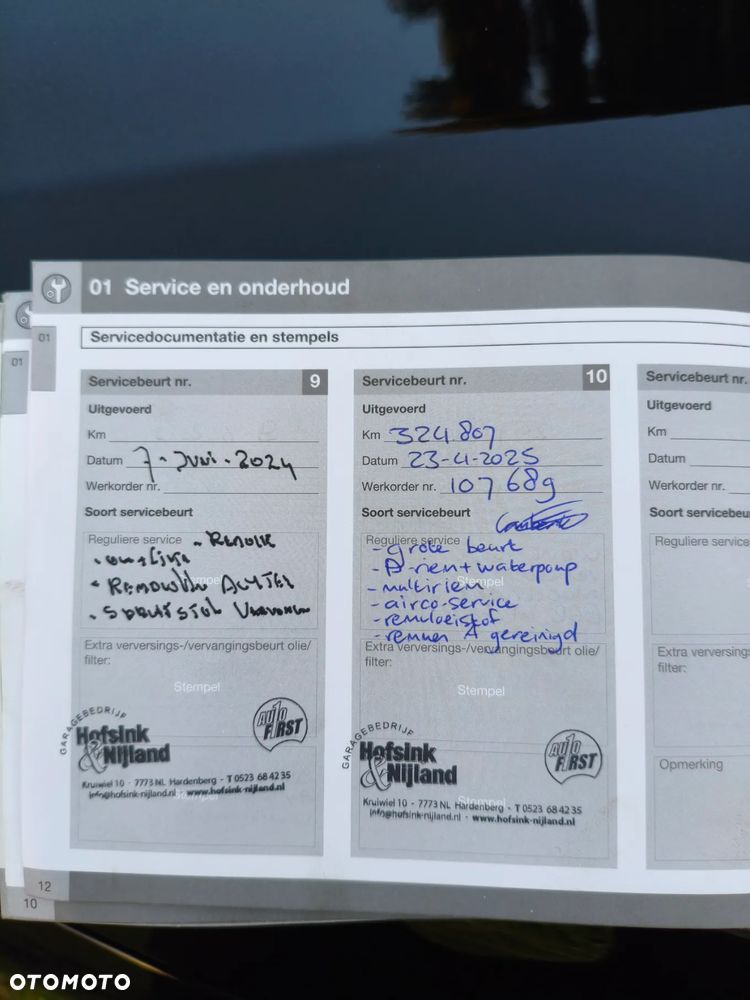 01 Service en onderhoud
01
01
Servicedocumentatie en stempels
Servicebeurt nr. 9
Uitgevoerd
Km
Datum 7-Juni-2024
Werkorder nr.
Soort servicebeurt
Reguliere service
Stempel
Extra verversings-/vervangingsbeurt olie/
filter:
Stempel
GARAGEBEDRIJF
Hofsink
& Nijland
AUTO
FIRST
Kruiwiel 10 - 7773 NL Hardenberg - T 0523 68 42 35
info@hofsink-nijland.nl - www.hofsink-nijland.nl
Servicebeurt nr. 10
Uitgevoerd
Km 324.807
Datum 23-4-2025
Werkorder nr. 107689
Soort servicebeurt
Reguliere service
- grote beurt
- D-riem + waterpomp
- multiriem
Stempel
- airco-service
- remvloeistof
- remmen A gereinigd
Extra verversings-/vervangingsbeurt olie/
filter:
Stempel
GARAGEBEDRIJF
Hofsink
& Nijland
AUTO
FIRST
Kruiwiel 10 - 7773 NL Hardenberg - T 0523 68 42 35
info@hofsink-nijland.nl - www.hofsink-nijland.nl
Servicebeurt nr.
Uitgevoerd
Km
Datum
Werkorder nr.
Soort servicebeu
Reguliere service
Extra verversings
filter:
Opmerking
12
10
OTOMOTO